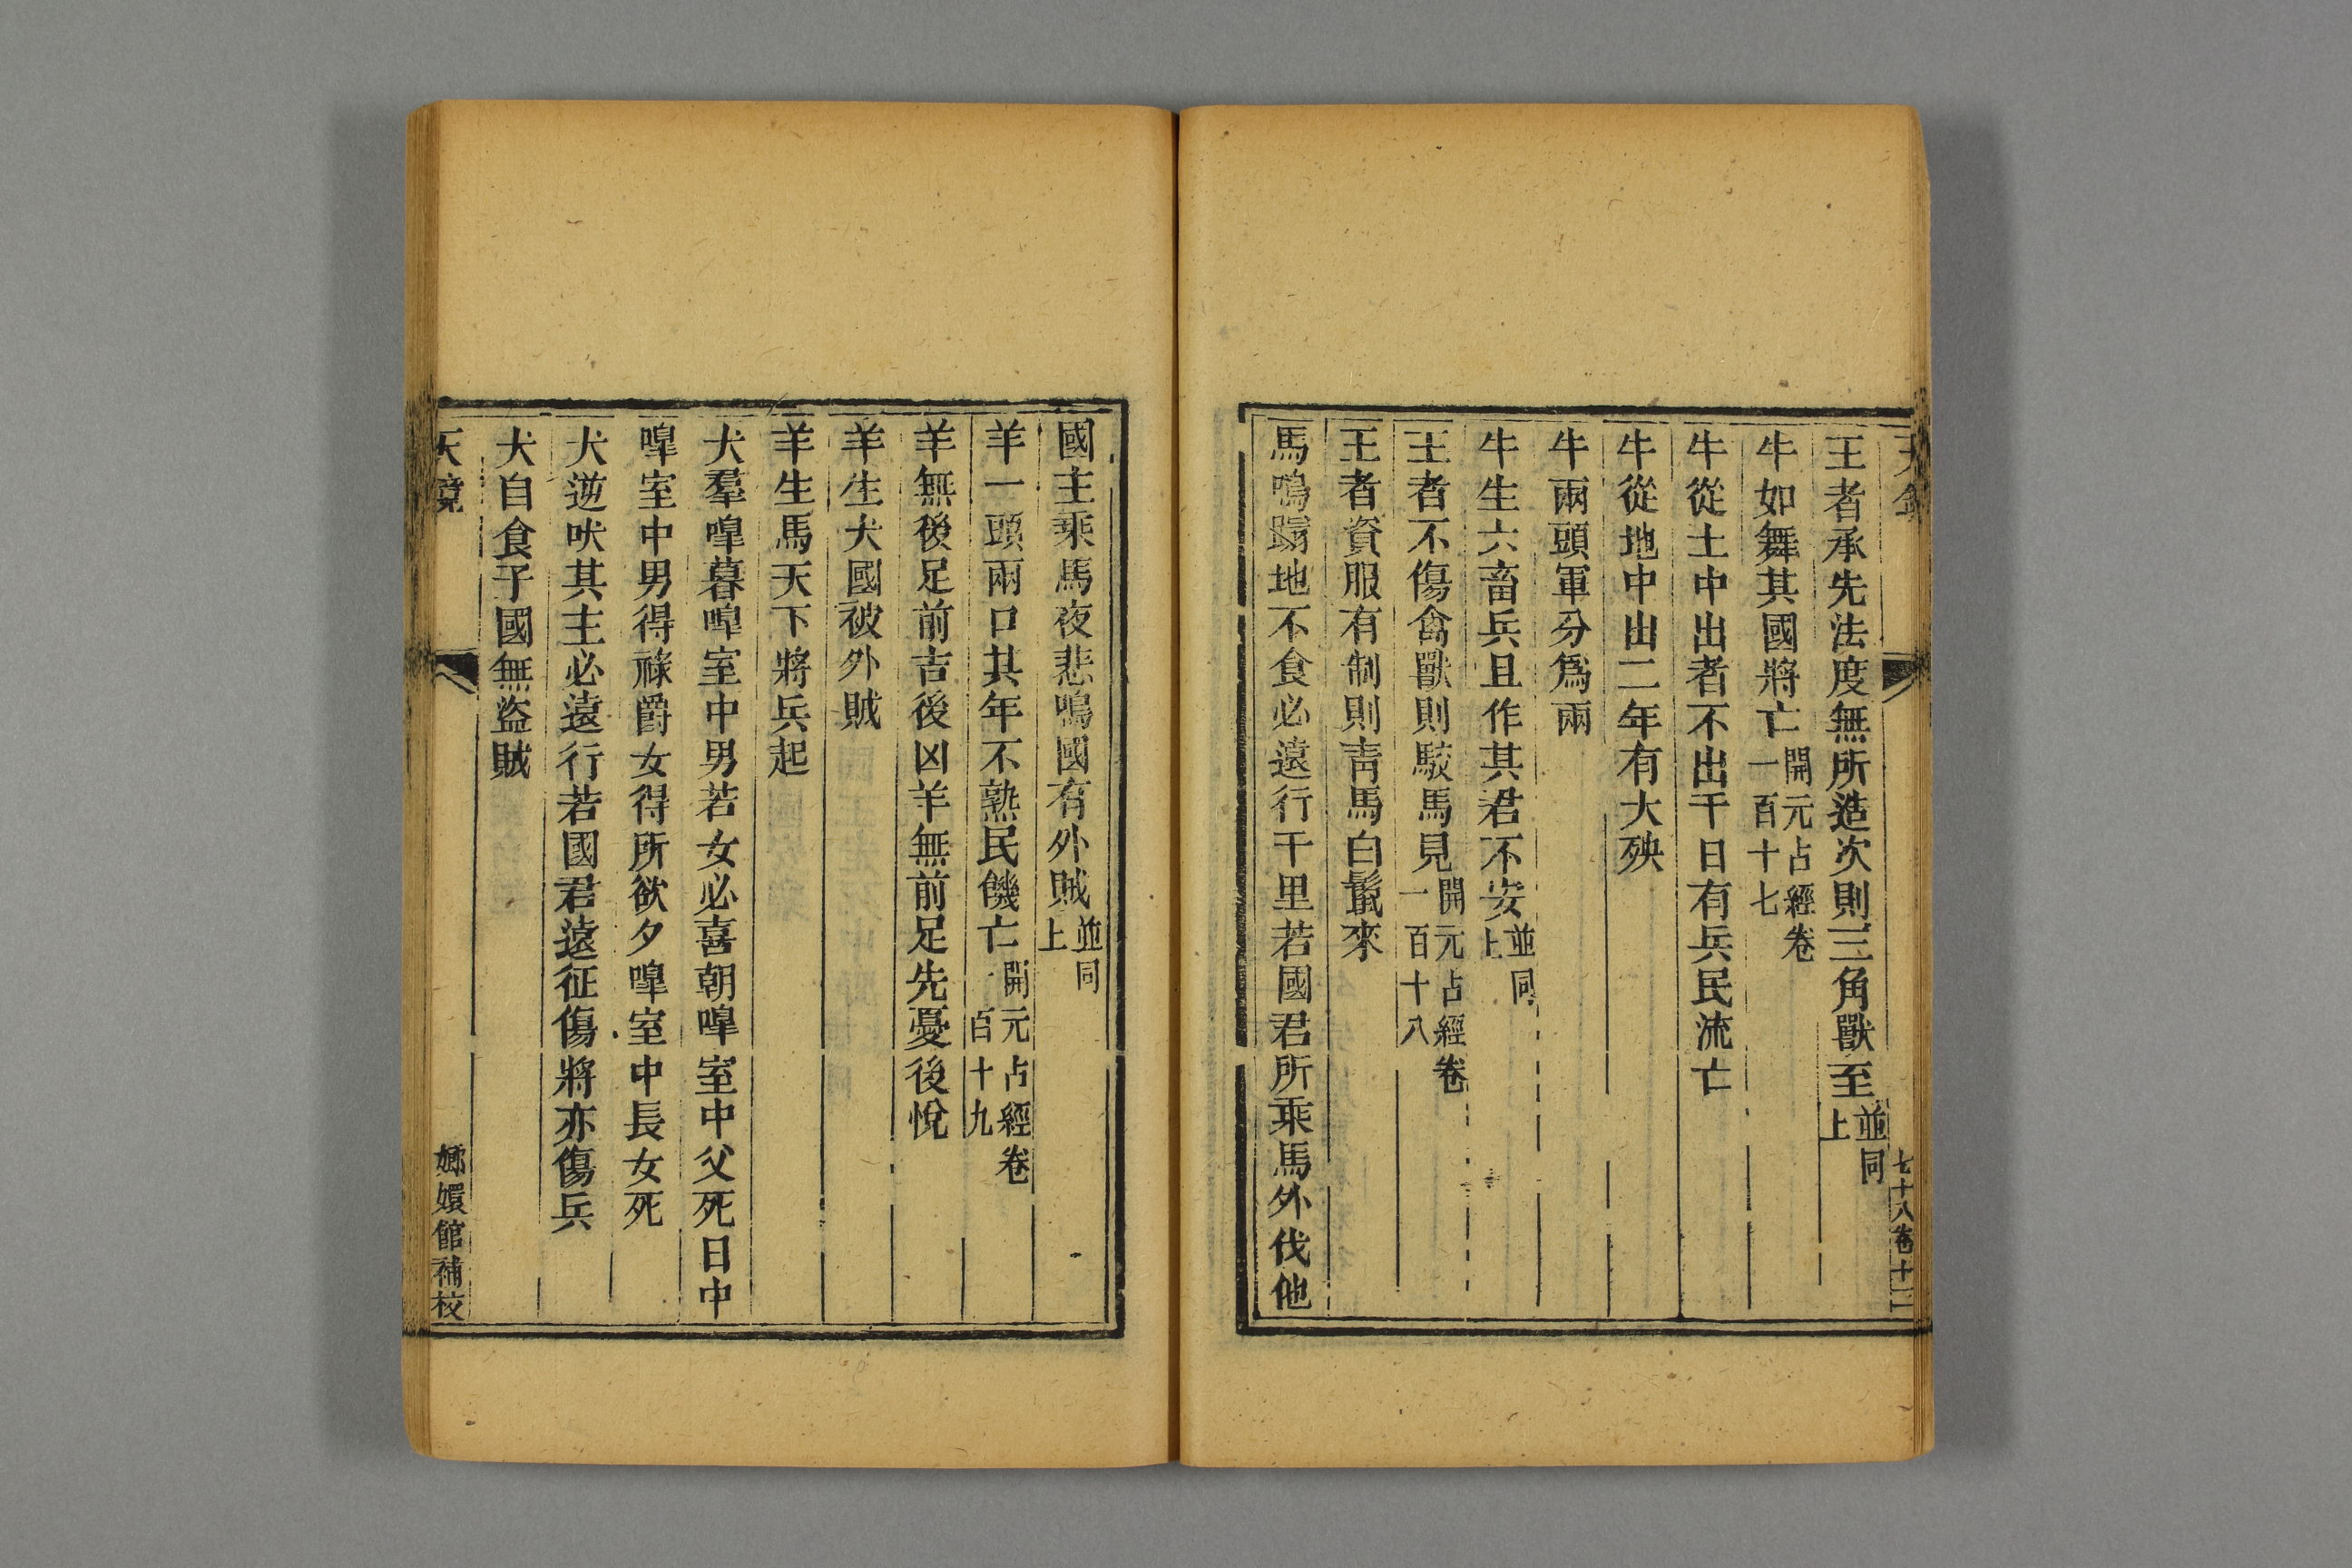 王者承先法度無所造次則三角獸至並同上
牛如舞其國將亡開元占經卷一百十七
牛從土中出者不出千日有兵民流亡
牛從地中出二年有大殃
牛兩頭軍分爲兩
牛生六畜兵且作其君不安並同上
王者不傷禽獸則駮馬見開元占經卷一百十八
王者資服有制則靑馬白鬣來
馬鳴躅地不食必遠行千里若國君所乘馬外伐他
七十八卷十二
國主乘馬夜悲鳴國有外賊並同上
羊一頭兩口其年不熟民饑亡開元占經卷一百十九
羊無後足前吉後凶羊無前足先憂後悅
羊生犬國被外賊
羊生馬天下將兵起
犬羣嘷暮嘷室中男若女必喜朝嘷室中父死日中
嘷室中男得祿爵女得所欲夕嘷室中長女死
犬逆吠其主必遠行若國君遠征傷將亦傷兵
犬自食子國無盜賊
天鏡
嫏嬛館補校